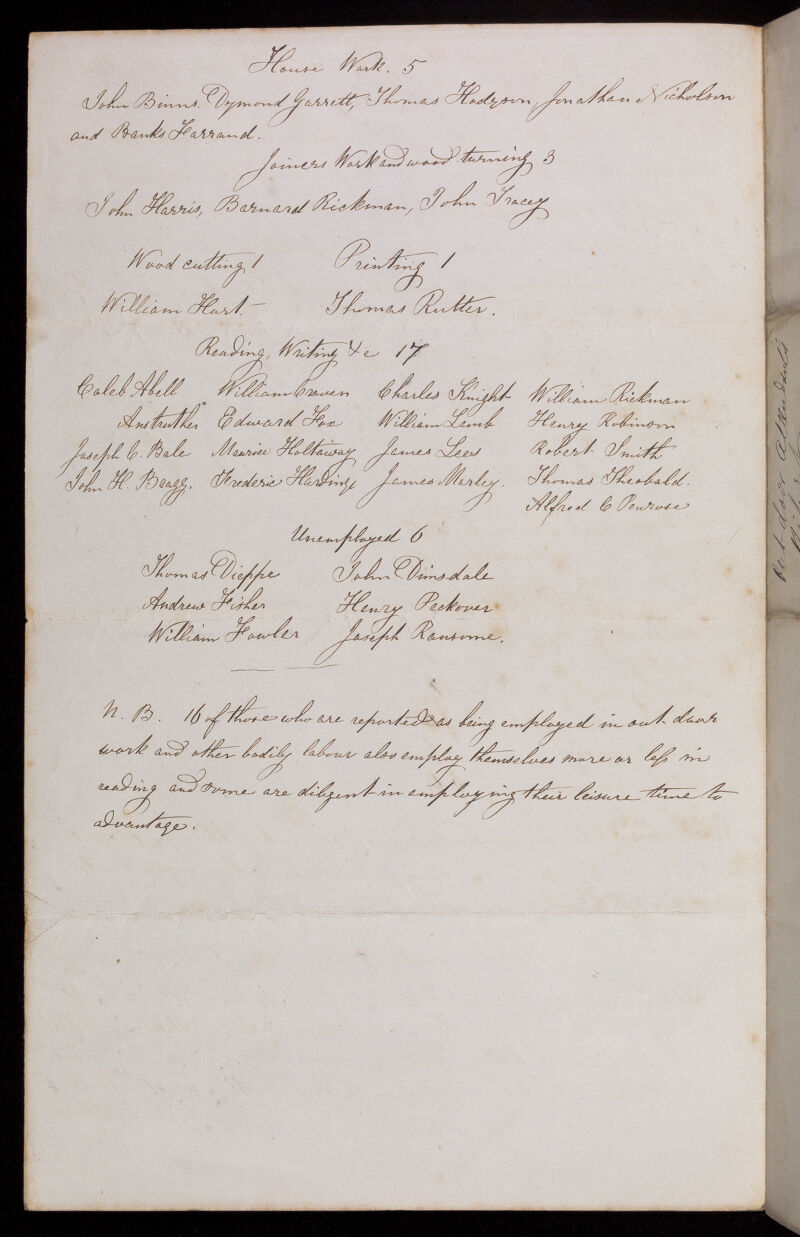 House Work. 5
John Binns. Dymond Garrett, Thomas Hodgson, Jonathan Nicholson
and Banks Farrand.
Joiners Work and wood turning 3
John Harris, Barnard Rickman, John Tracey
Wood cutting 1 Printing 1
William Hart Thomas Rutter.
Reading, Writing &c 17
Caleb Abell William Craven Charles Knight William Rickman
Anstruther Edward Fox William Lamb Henry Robinson
Joseph C. Bale Maurice Holtaway James Lees Robert Smith
John H. Bragg. Frederic Hardinge James Marley. Thomas Theobald.
Alfred C Penrose
Unemployed 6
Thomas Dieppe John Dimsdale
Andrew Fisher Henry Peckover
William Fowler Joseph Ransome.
N. B. 16 of those who are reported as being employed in out door
work and other bodily labour also employ themselves more or less in
reading and some are diligent in employing their leisure time to
advantage.
Out door attendants